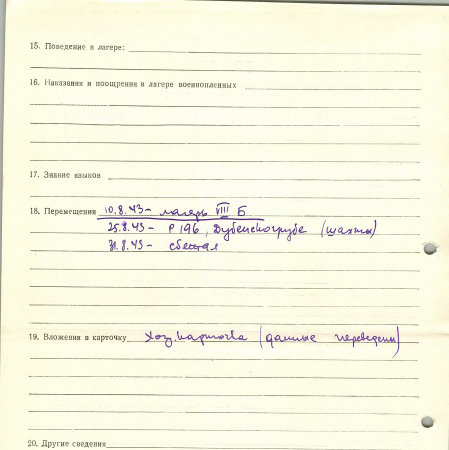 15. Поведение в лагере:
16. Наказания и поощрения в лагере военнопленных
17. Знание языков
18. Перемещения 10.8.43 - лагерь VIII Б
25.8.43 - Р 196, Дубенскогрубе (шахты)
31.8.43 - сбежал
19. Вложения в карточку хоз. карточка (данные переведены)
20. Другие сведения